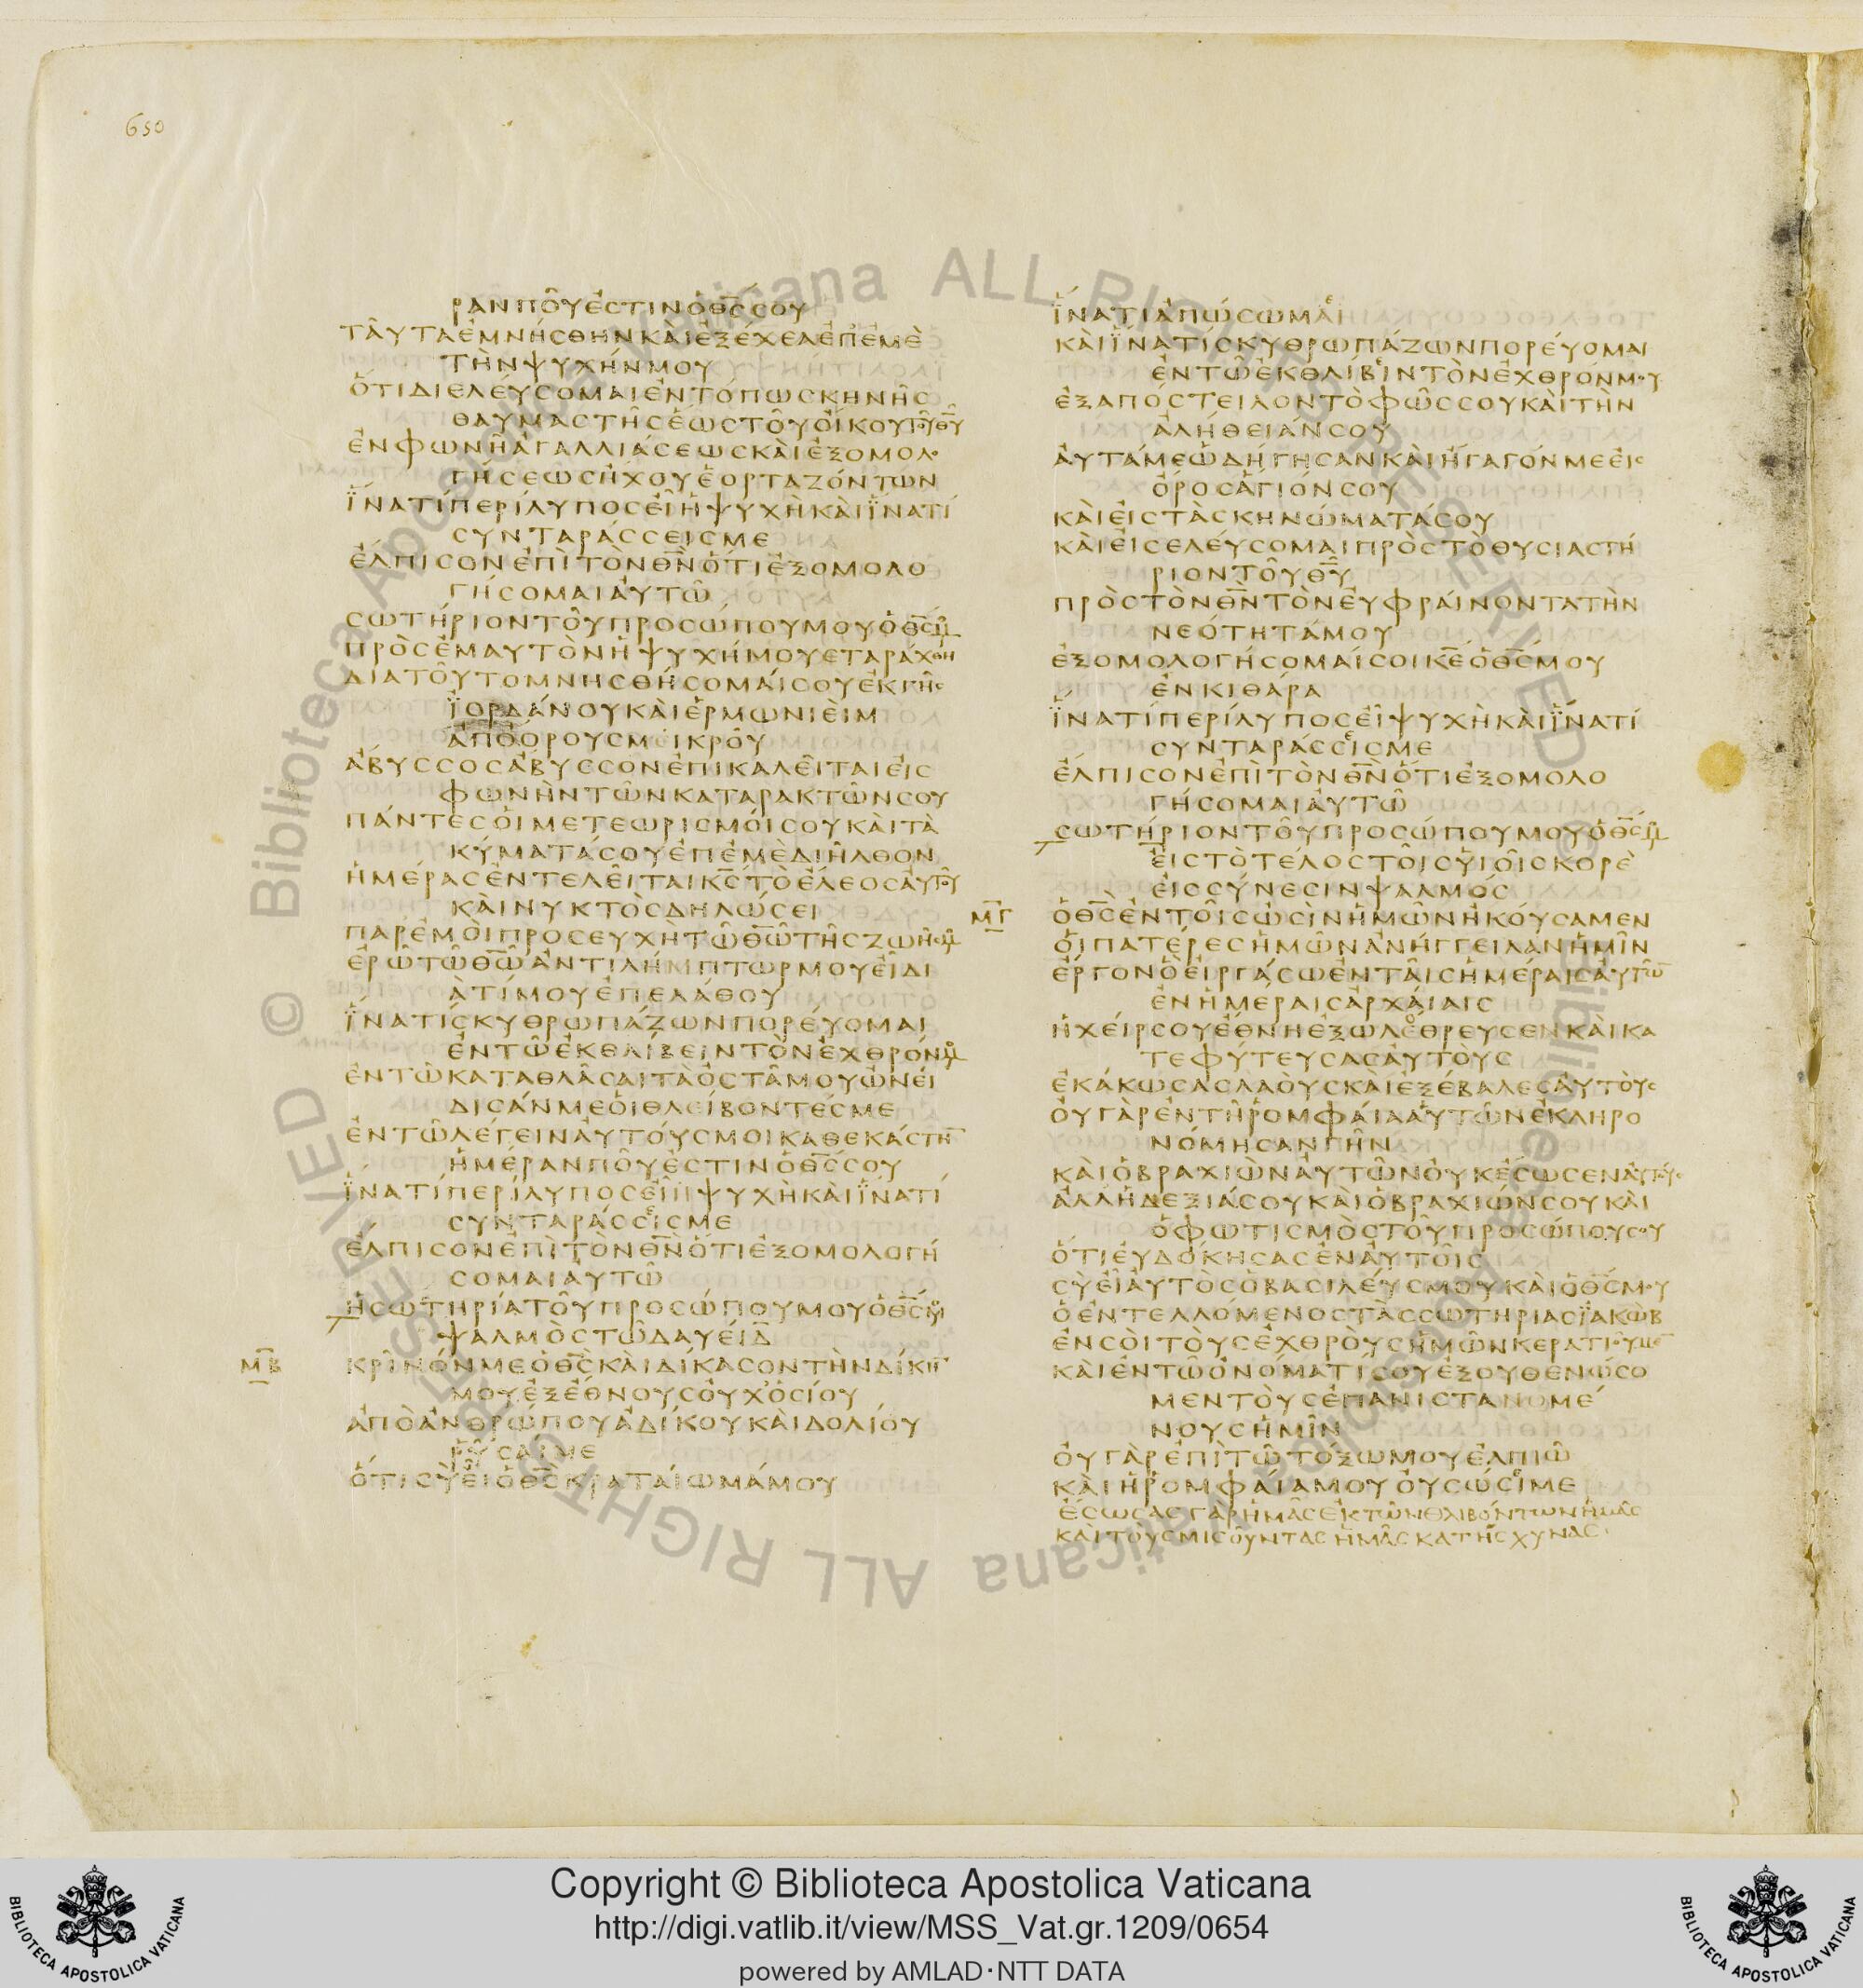 650
ΡΑΝΠΟΥΕϹΤΙΝΟΘ̅Ϲ̅ϹΟΥ
ΤΑΥΤΑΕΜΝΗϹΘΗΝΚΑΙΕΞΕΧΕΑΕΠΕΜΕ
ΤΗΝΨΥΧΗΝΜΟΥ
ΟΤΙΔΙΕΛΕΥϹΟΜΑΙΕΝΤΟΠΩϹΚΗΝΗϹ
ΘΑΥΜΑϹΤΗϹΕΩϹΤΟΥΟΙΚΟΥΤΟΥΘ̅Υ̅
ΕΝΦΩΝΗΑΓΑΛΛΙΑϹΕΩϹΚΑΙΕΞΟΜΟΛΟ
ΓΗϹΕΩϹΗΧΟΥΕΟΡΤΑΖΟΝΤΩΝ
ΪΝΑΤΙΠΕΡΙΛΥΠΟϹΕΙΗΨΥΧΗΚΑΙΪΝΑΤΙ
ϹΥΝΤΑΡΑϹϹΕΙϹΜΕ
ΕΛΠΙϹΟΝΕΠΙΤΟΝΘ̅Ν̅ΟΤΙΕΞΟΜΟΛΟ
ΓΗϹΟΜΑΙΑΥΤΩ
ϹΩΤΗΡΙΟΝΤΟΥΠΡΟϹΩΠΟΥΜΟΥΟΘ̅Ϲ̅ΜΟΥ
ΠΡΟϹΕΜΑΥΤΟΝΗΨΥΧΗΜΟΥΕΤΑΡΑΧΘΗ
ΔΙΑΤΟΥΤΟΜΝΗϹΘΗϹΟΜΑΙϹΟΥΕΚΓΗϹ
ΪΟΡΔΑΝΟΥΚΑΙΕΡΜΩΝΙΕΙΜ
ΑΠΟΟΡΟΥϹΜΙΚΡΟΥ
ΑΒΥϹϹΟϹΑΒΥϹϹΟΝΕΠΙΚΑΛΕΙΤΑΙΕΙϹ
ΦΩΝΗΝΤΩΝΚΑΤΑΡΑΚΤΩΝϹΟΥ
ΠΑΝΤΕϹΟΙΜΕΤΕΩΡΙϹΜΟΙϹΟΥΚΑΙΤΑ
ΚΥΜΑΤΑϹΟΥΕΠΕΜΕΔΙΗΛΘΟΝ
ΗΜΕΡΑϹΕΝΤΕΛΕΙΤΑΙΚ̅Ϲ̅ΤΟΕΛΕΟϹΑΥΤΟΥ
ΚΑΙΝΥΚΤΟϹΔΗΛΩϹΕΙ
ΠΑΡΕΜΟΙΠΡΟϹΕΥΧΗΤΩΘ̅Ω̅ΤΗϹΖΩΗϹΜΟΥ
ΕΡΩΤΩΘ̅Ω̅ΑΝΤΙΛΗΜΠΤΩΡΜΟΥΕΙΔΙ
ΑΤΙΜΟΥΕΠΕΛΑΘΟΥ
ΪΝΑΤΙϹΚΥΘΡΩΠΑΖΩΝΠΟΡΕΥΟΜΑΙ
ΕΝΤΩΕΚΘΛΙΒΕΙΝΤΟΝΕΧΘΡΟΝΜΟΥ
ΕΝΤΩΚΑΤΑΘΛΑϹΑΙΤΑΟϹΤΑΜΟΥΩΝΕΙ
ΔΙϹΑΝΜΕΟΙΘΛΕΙΒΟΝΤΕϹΜΕ
ΕΝΤΩΛΕΓΕΙΝΑΥΤΟΥϹΜΟΙΚΑΘΕΚΑϹΤΗ̅
ΗΜΕΡΑΝΠΟΥΕϹΤΙΝΟΘ̅Ϲ̅ϹΟΥ
ΪΝΑΤΙΠΕΡΙΛΥΠΟϹΕΙΗΨΥΧΗΚΑΙΪΝΑΤΙ
ϹΥΝΤΑΡΑϹϹΕΙϹΜΕ
ΕΛΠΙϹΟΝΕΠΙΤΟΝΘ̅Ν̅ΟΤΙΕΞΟΜΟΛΟΓΗ
ϹΟΜΑΙΑΥΤΩ
ΗϹΩΤΗΡΙΑΤΟΥΠΡΟϹΩΠΟΥΜΟΥΟΘ̅Ϲ̅ΜΟΥ
ΨΑΛΜΟϹΤΩΔΑΥΕΙΔ
Μ̅Β̅
ΚΡΙΝΟΝΜΕΟΘ̅Ϲ̅ΚΑΙΔΙΚΑϹΟΝΤΗΝΔΙΚΗ̅
ΜΟΥΕΞΕΘΝΟΥϹΟΥΧΟϹΙΟΥ
ΑΠΟΑΝΘΡΩΠΟΥΑΔΙΚΟΥΚΑΙΔΟΛΙΟΥ
ΡΥϹΑΙΜΕ
ΟΤΙϹΥΕΙΟΘ̅Ϲ̅ΚΡΑΤΑΙΩΜΑΜΟΥ
ΪΝΑΤΙΑΠΩϹΩΜΑΙ
ΚΑΙΪΝΑΤΙϹΚΥΘΡΩΠΑΖΩΝΠΟΡΕΥΟΜΑΙ
ΕΝΤΩΕΚΘΛΙΒΕΙΝΤΟΝΕΧΘΡΟΝΜΟΥ
ΕΞΑΠΟϹΤΕΙΛΟΝΤΟΦΩϹϹΟΥΚΑΙΤΗΝ
ΑΛΗΘΕΙΑΝϹΟΥ
ΑΥΤΑΜΕΩΔΗΓΗϹΑΝΚΑΙΗΓΑΓΟΝΜΕΕΙϹ
ΟΡΟϹΑΓΙΟΝϹΟΥ
ΚΑΙΕΙϹΤΑϹΚΗΝΩΜΑΤΑϹΟΥ
ΚΑΙΕΙϹΕΛΕΥϹΟΜΑΙΠΡΟϹΤΟΘΥϹΙΑϹΤΗ
ΡΙΟΝΤΟΥΘ̅Υ̅
ΠΡΟϹΤΟΝΘ̅Ν̅ΤΟΝΕΥΦΡΑΙΝΟΝΤΑΤΗΝ
ΝΕΟΤΗΤΑΜΟΥ
ΕΞΟΜΟΛΟΓΗϹΟΜΑΙϹΟΙΚ̅Ε̅ΟΘ̅Ϲ̅ΜΟΥ
ΕΝΚΙΘΑΡΑ
ΪΝΑΤΙΠΕΡΙΛΥΠΟϹΕΙΨΥΧΗΚΑΙΪΝΑΤΙ
ϹΥΝΤΑΡΑϹϹΕΙϹΜΕ
ΕΛΠΙϹΟΝΕΠΙΤΟΝΘ̅Ν̅ΟΤΙΕΞΟΜΟΛΟ
ΓΗϹΟΜΑΙΑΥΤΩ
ϹΩΤΗΡΙΟΝΤΟΥΠΡΟϹΩΠΟΥΜΟΥΟΘ̅Ϲ̅ΜΟΥ
ΕΙϹΤΟΤΕΛΟϹΤΟΙϹΥΙΟΙϹΚΟΡΕ
ΕΙϹϹΥΝΕϹΙΝΨΑΛΜΟϹ
Μ̅Γ̅
ΟΘ̅Ϲ̅ΕΝΤΟΙϹΩϹΙΝΗΜΩΝΗΚΟΥϹΑΜΕΝ
ΟΙΠΑΤΕΡΕϹΗΜΩΝΑΝΗΓΓΕΙΛΑΝΗΜΙΝ
ΕΡΓΟΝΟΕΙΡΓΑϹΩΕΝΤΑΙϹΗΜΕΡΑΙϹΑΥΤΩ̅
ΕΝΗΜΕΡΑΙϹΑΡΧΑΙΑΙϹ
ΗΧΕΙΡϹΟΥΕΘΝΗΕΞΩΛΕΘΡΕΥϹΕΝΚΑΙΚΑ
ΤΕΦΥΤΕΥϹΑϹΑΥΤΟΥϹ
ΕΚΑΚΩϹΑϹΛΑΟΥϹΚΑΙΕΞΕΒΑΛΕϹΑΥΤΟΥϹ
ΟΥΓΑΡΕΝΤΗΡΟΜΦΑΙΑΑΥΤΩΝΕΚΛΗΡΟ
ΝΟΜΗϹΑΝΓΗΝ
ΚΑΙΟΒΡΑΧΙΩΝΑΥΤΩΝΟΥΚΕϹΩϹΕΝΑΥΤΟΥϹ
ΑΛΛΗΔΕΞΙΑϹΟΥΚΑΙΟΒΡΑΧΙΩΝϹΟΥΚΑΙ
ΟΦΩΤΙϹΜΟϹΤΟΥΠΡΟϹΩΠΟΥϹΟΥ
ΟΤΙΕΥΔΟΚΗϹΑϹΕΝΑΥΤΟΙϹ
ϹΥΕΙΑΥΤΟϹΟΒΑϹΙΛΕΥϹΜΟΥΚΑΙΟΘ̅Ϲ̅ΜΟΥ
ΟΕΝΤΕΛΛΟΜΕΝΟϹΤΑϹϹΩΤΗΡΙΑϹΪΑΚΩΒ
ΕΝϹΟΙΤΟΥϹΕΧΘΡΟΥϹΗΜΩΝΚΕΡΑΤΙΟΥΜΕ̅
ΚΑΙΕΝΤΩΟΝΟΜΑΤΙϹΟΥΕΞΟΥΘΕΝΩϹΟ
ΜΕΝΤΟΥϹΕΠΑΝΙϹΤΑΝΟΜΕ
ΝΟΥϹΗΜΙΝ
ΟΥΓΑΡΕΠΙΤΩΤΟΞΩΜΟΥΕΛΠΙΩ
ΚΑΙΗΡΟΜΦΑΙΑΜΟΥΟΥϹΩϹΕΙΜΕ
ΕϹΩϹΑϹΓΑΡΗΜΑϹΕΚΤΩΝΘΛΙΒΟΝΤΩΝΗΜΑϹ
ΚΑΙΤΟΥϹΜΙϹΟΥΝΤΑϹΗΜΑϹΚΑΤΗϹΧΥΝΑϹ
© Biblioteca Apostolica Vaticana ALL RIGHTS RESERVED
© Biblioteca Apostolica Vaticana ALL RIGHTS RESERVED
Copyright © Biblioteca Apostolica Vaticana
http://digi.vatlib.it/view/MSS_Vat.gr.1209/0654
powered by AMLAD·NTT DATA
BIBLIOTECA APOSTOLICA VATICANA
BIBLIOTECA APOSTOLICA VATICANA